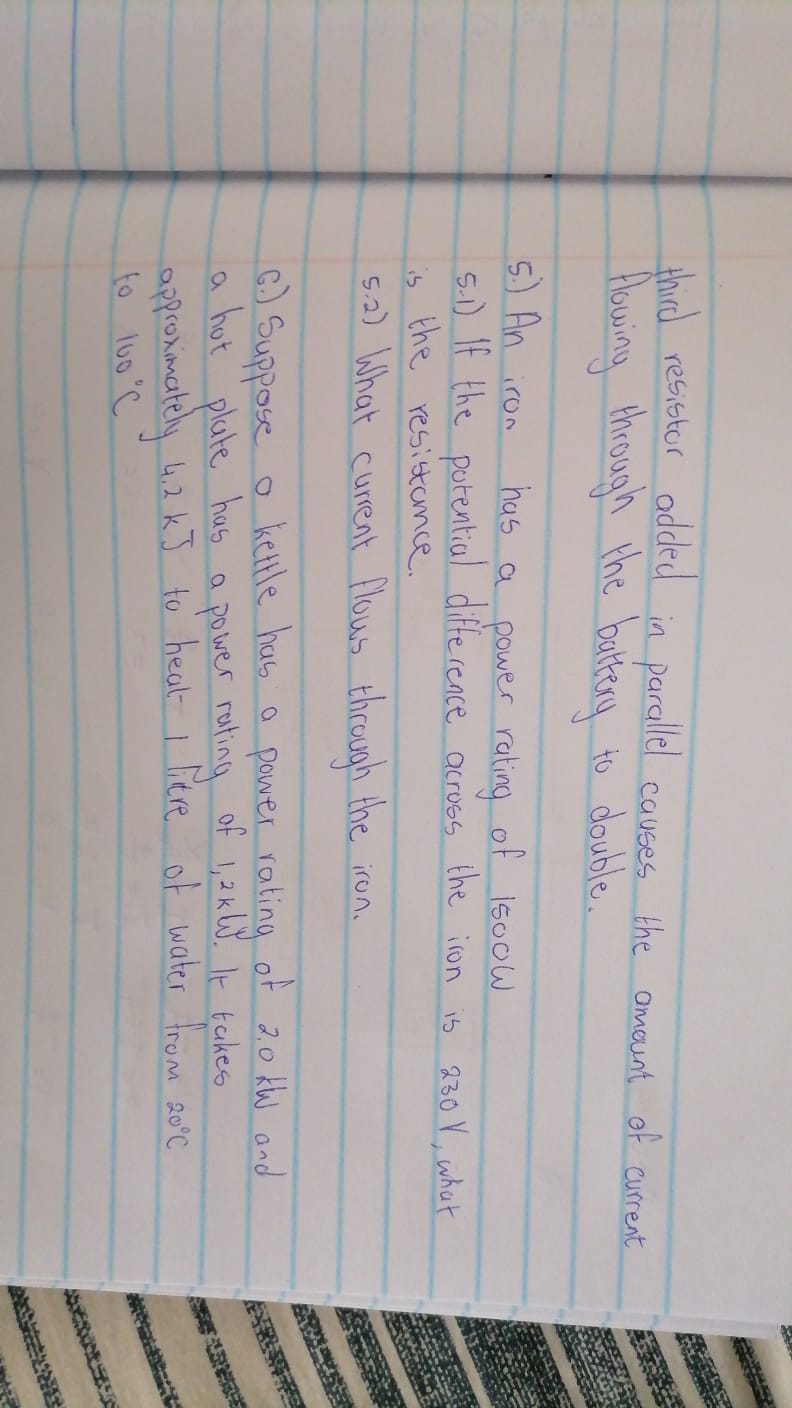 third resistor added in parallel causes the amount of current
flowing through the battery to double.
5.) An iron has a power rating of 1500W
5.1) If the potential difference across the iron is 230V, what
is the resistance.
5.2) What current flows through the iron.
6.) Suppose a kettle has a power rating of 2,0 kW and
a hot plate has a power rating of 1,2kW. It takes
approximately 4.2 kJ to heat 1 litre of water from 20°C
to 100°C